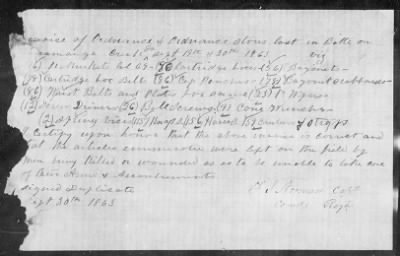 Ordnance & Ordnance Stores lost in Battle on
Creek Ga Sept 19th & 20th 1863 viz
Muskets Cal 69 - 86 Cartridge boxes (56) Bayonets
Cartridge box Belts (86) Cap Pouches (78) Bayonet Scabbards
(86) Waist Belts and Plates for same (23) Wipers
Screw Drivers (26) Ball Screws Cone Wrenches
Spring vice (45) Knap Haver Canteens & Straps
I Certify upon honor that the above invoice is correct and
that the articles enumerated were left on the field by
men being Killed or wounded so as to be unable to take care
of their Arms & Accoutrements
Signed Duplicate
Sept 30th 1863
Capt
Comdg Regt